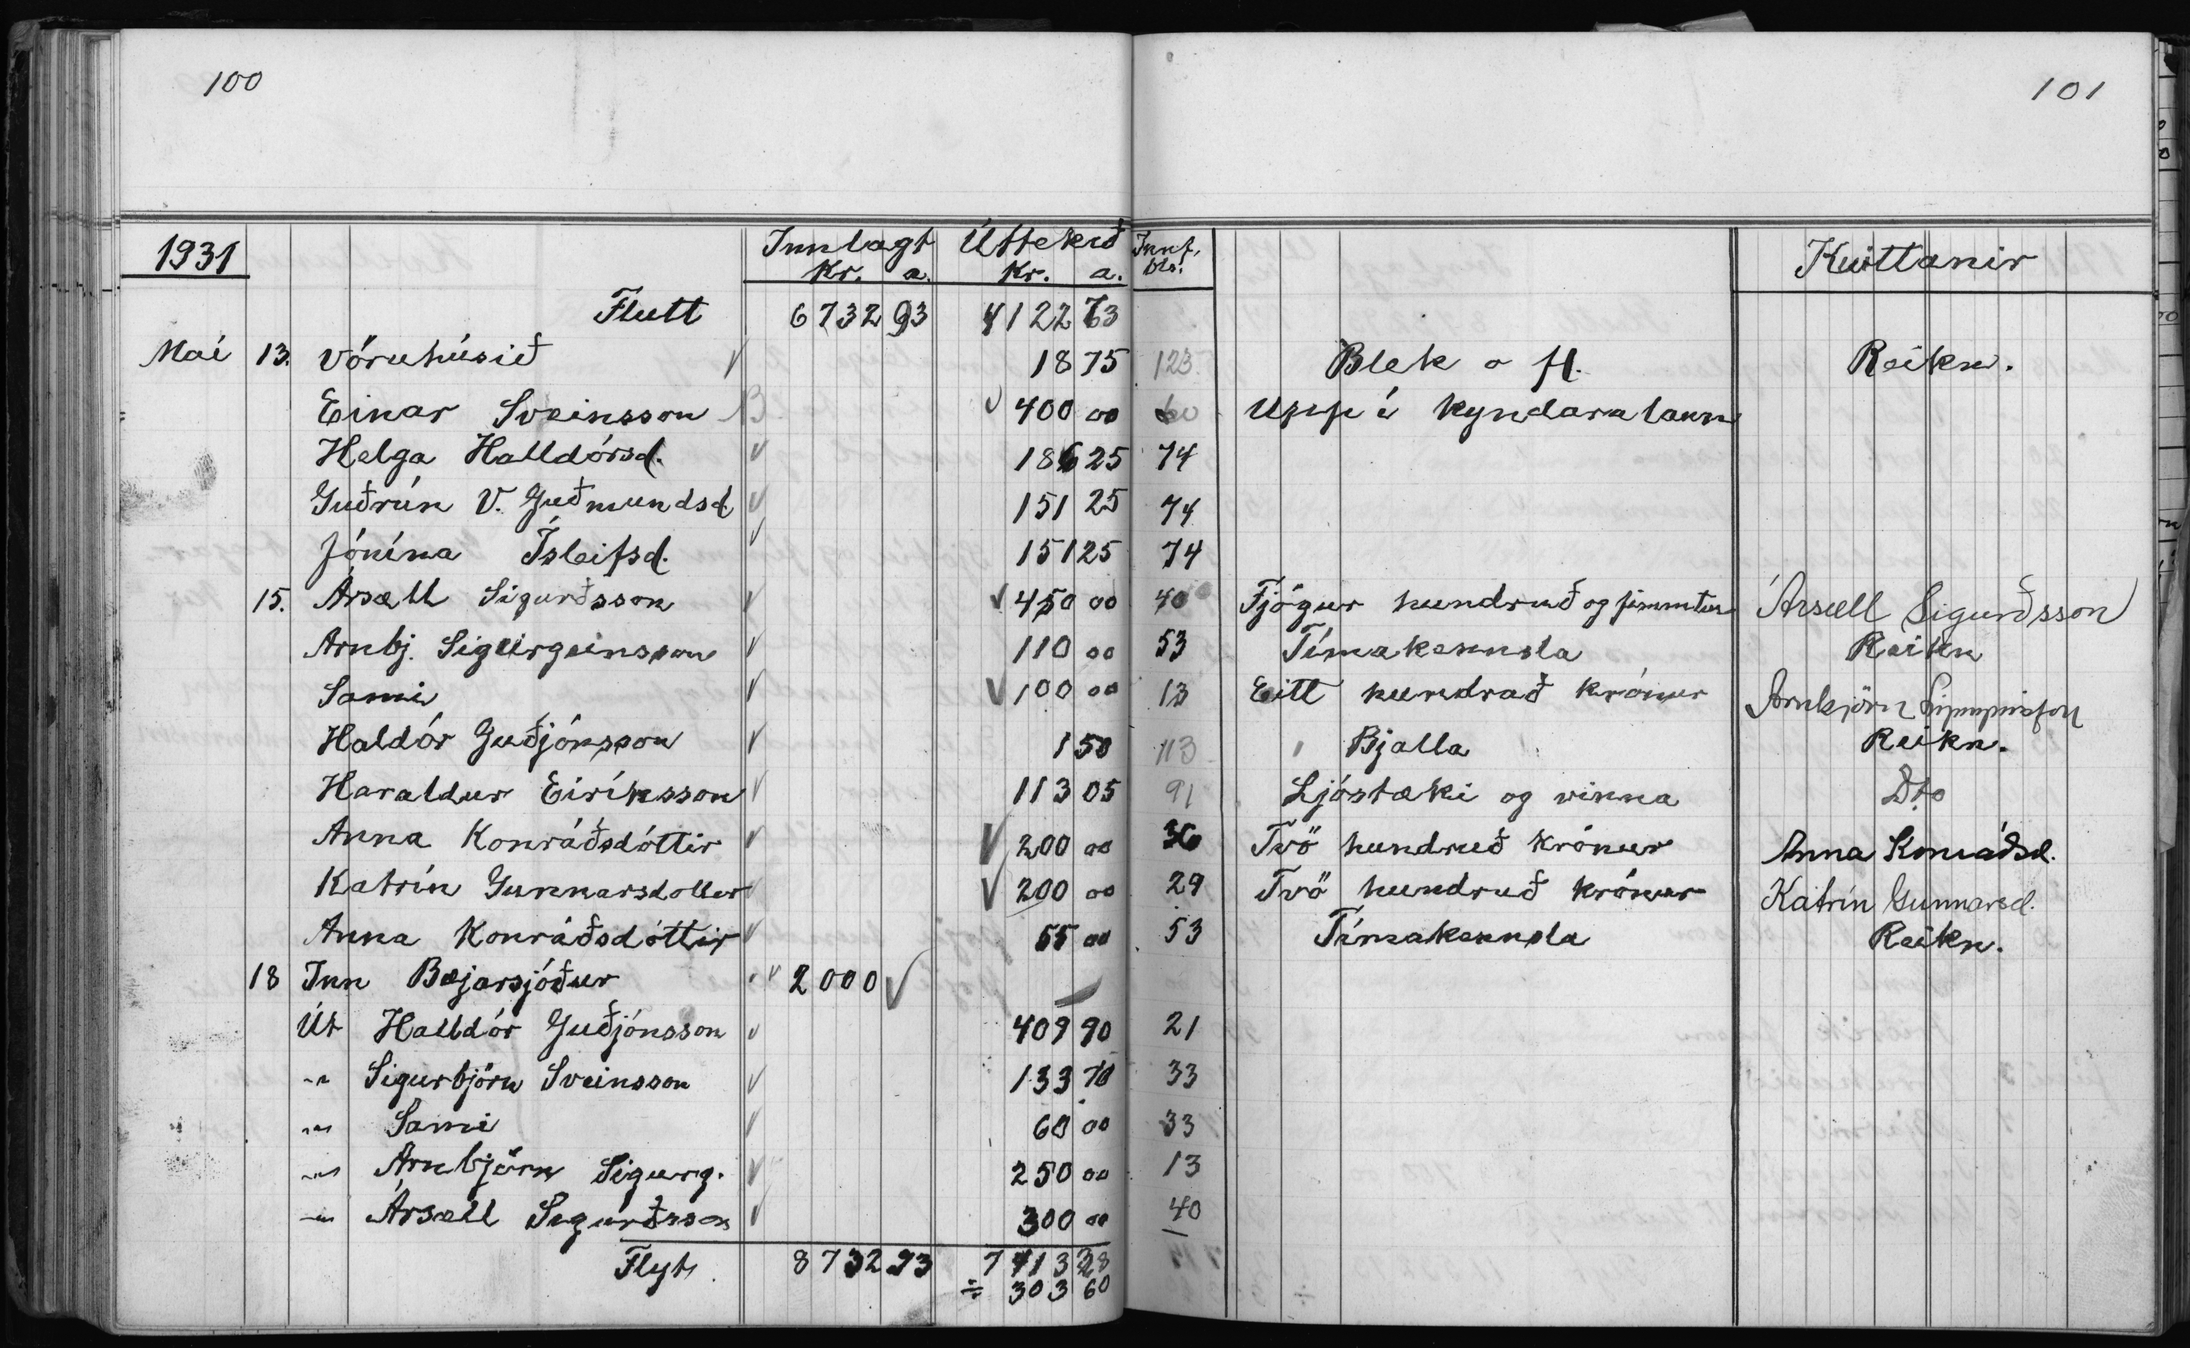 100
101
1931 Innlagt Úttekið Innf. Kvittanir
Kr. a. Kr. a. bls.
Flutt 6732 93 4122 73
Maí 13. Vöruhúsið 18 75 123 Blek o fl. Reikn.
Einar Sveinsson 400 00 60 Upp í kyndaralaun
Helga Halldórsd. 186 25 74
Guðrún V. Guðmundsd. 151 25 74
Jónína Ísleifsd. 151 25 74
15. Ársæll Sigurðsson 450 00 40 Fjögur hundruð og fimmtíu Ársæll Sigurðsson
Arnbj. Sigurgeinsson 110 00 53 Tímakennsla Reikn
Sami 100 00 13 Eitt hundrað krónur Arnbjörn
Haldór Guðjónsson 1 50 113 Bjalla Reikn.
Haraldur Eiríksson 113 05 91 Ljóstæki og vinna Dto
Anna Konráðsdóttir 200 00 36 Tvö hundruð krónur Anna Konráðsd.
Katrín Gunnarsdottir 200 00 29 Tvö hundruð krónur Katrín Gunnarsd.
Anna Konráðsdóttir 55 00 53 Tímakennsla Reikn.
18 Inn Bæjarsjóður 2000
Út Halldór Guðjónsson 409 90 21
-"- Sigurbjörn Sveinsson 133 70 33
-"- Sami 60 00 33
-"- Arnbjörn Sigurg. 250 00 13
-"- Ársæll Sigurðsson 300 00 40
Flyt 8732 93 7413 38
÷ 303 60